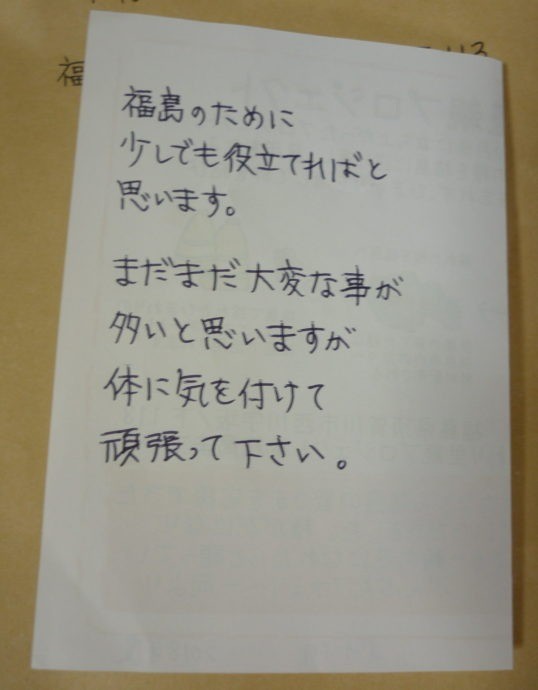 福
福島のために
少しでも役立てればと
思います。
まだまだ大変な事が
多いと思いますが
体に気を付けて
頑張って下さい。